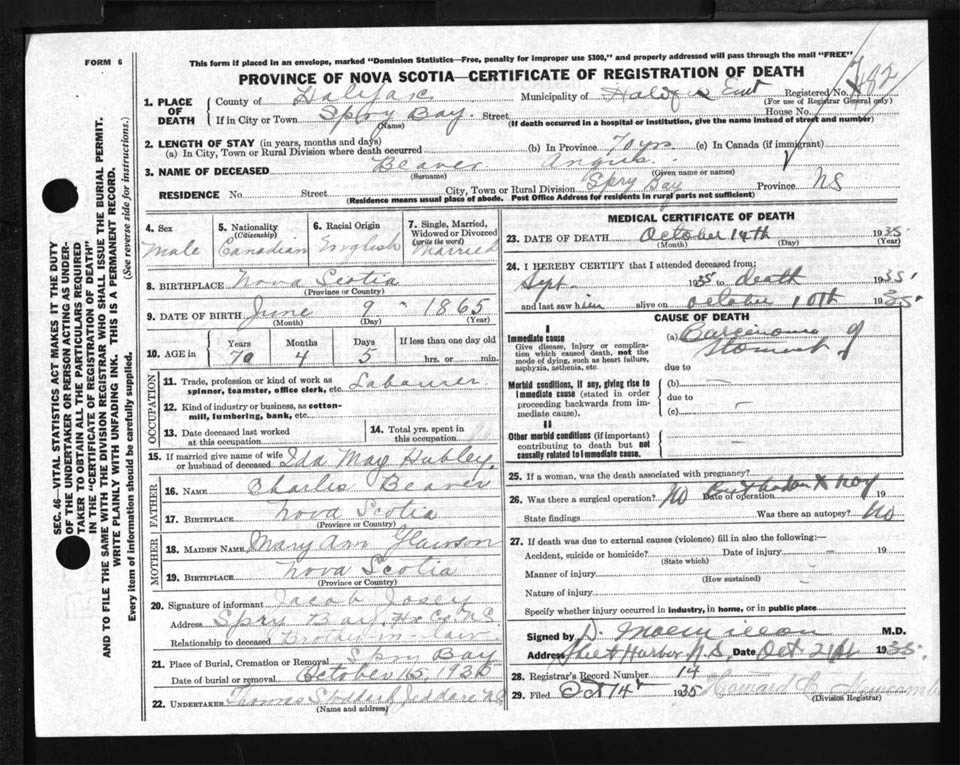 FORM 6
This form if placed in an envelope, marked "Dominion Statistics—Free, penalty for improper use $300," and properly addressed will pass through the mail "FREE"
PROVINCE OF NOVA SCOTIA—CERTIFICATE OF REGISTRATION OF DEATH
1. PLACE OF DEATH
County of Halifax Municipality of Halifax East Registered No. 482
(For use of Registrar General only)
If in City or Town Spry Bay. Street House No.
(Name) (If death occurred in a hospital or institution, give the name instead of street and number)
2. LENGTH OF STAY (in years, months and days)
(a) In City, Town or Rural Division where death occurred (b) In Province 70 yrs. (c) In Canada (if immigrant)
3. NAME OF DECEASED Beaver Angus.
(Surname) (Given name or names)
RESIDENCE No. Street City, Town or Rural Division Spry Bay Province NS
(Residence means usual place of abode. Post Office Address for residents in rural parts not sufficient)
4. Sex Male
5. Nationality (Citizenship) Canadian
6. Racial Origin English
7. Single, Married, Widowed or Divorced (write the word) Married
8. BIRTHPLACE Nova Scotia
(Province or Country)
9. DATE OF BIRTH June 9 - 1865
(Month) (Day) (Year)
10. AGE in Years Months Days If less than one day old
70 4 5 hrs. or min.
OCCUPATION
11. Trade, profession or kind of work as spinner, teamster, office clerk, etc. Labourer.
12. Kind of industry or business, as cotton-mill, lumbering, bank, etc.
13. Date deceased last worked at this occupation
14. Total yrs. spent in this occupation
15. If married give name of wife or husband of deceased Ida May Hubley.
FATHER
16. NAME Charles Beaver
17. BIRTHPLACE Nova Scotia
(Province or Country)
MOTHER
18. MAIDEN NAME Mary Ann
19. BIRTHPLACE Nova Scotia
(Province or Country)
20. Signature of informant Jacob Josey
Address Spry Bay. Hx Co. N.S.
Relationship to deceased Brother-in-law.
21. Place of Burial, Cremation or Removal Spry Bay
Date of burial or removal October 16, 1935
22. UNDERTAKER Thomas Stoddard Jeddore N.S.
(Name and address)
MEDICAL CERTIFICATE OF DEATH
23. DATE OF DEATH October 14th 1935
(Month) (Day) (Year)
24. I HEREBY CERTIFY that I attended deceased from:
Sept. 1935 to death 1935
and last saw him alive on October 10th 1935
CAUSE OF DEATH
I
Immediate cause
Give disease, injury or complication which caused death, not the mode of dying, such as heart failure, asphyxia, asthenia, etc.
(a) Carcenoma of
Stomach
due to
Morbid conditions, if any, giving rise to immediate cause (stated in order proceeding backwards from immediate cause).
(b) —
due to
(c) —
II
Other morbid conditions (if important) contributing to death but not causally related to immediate cause.
25. If a woman, was the death associated with pregnancy?
26. Was there a surgical operation? No Date of operation 19
State findings Was there an autopsy? No
27. If death was due to external causes (violence) fill in also the following:—
Accident, suicide or homicide? Date of injury — 19
(State which)
Manner of injury
(How sustained)
Nature of injury
Specify whether injury occurred in industry, in home, or in public place
Signed by D. M.D.
Address Sheet Harbor N.S. Date Oct 1935.
28. Registrar's Record Number 14
29. Filed Oct 14th 1935 Howard E. Newcombe
(Division Registrar)
SEC. 46—VITAL STATISTICS ACT MAKES IT THE DUTY
OF THE UNDERTAKER OR PERSON ACTING AS UNDER-
TAKER TO OBTAIN ALL THE PARTICULARS REQUIRED
IN THE "CERTIFICATE OF REGISTRATION OF DEATH"
AND TO FILE THE SAME WITH THE DIVISION REGISTRAR WHO SHALL ISSUE THE BURIAL PERMIT.
WRITE PLAINLY WITH UNFADING INK. THIS IS A PERMANENT RECORD.
Every item of information should be carefully supplied. (See reverse side for instructions.)